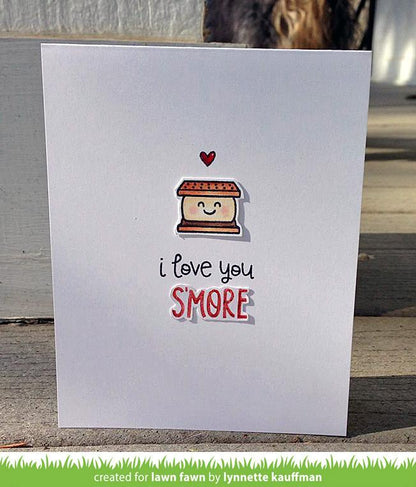 i love you
S'MORE
created for lawn fawn by lynnette kauffman